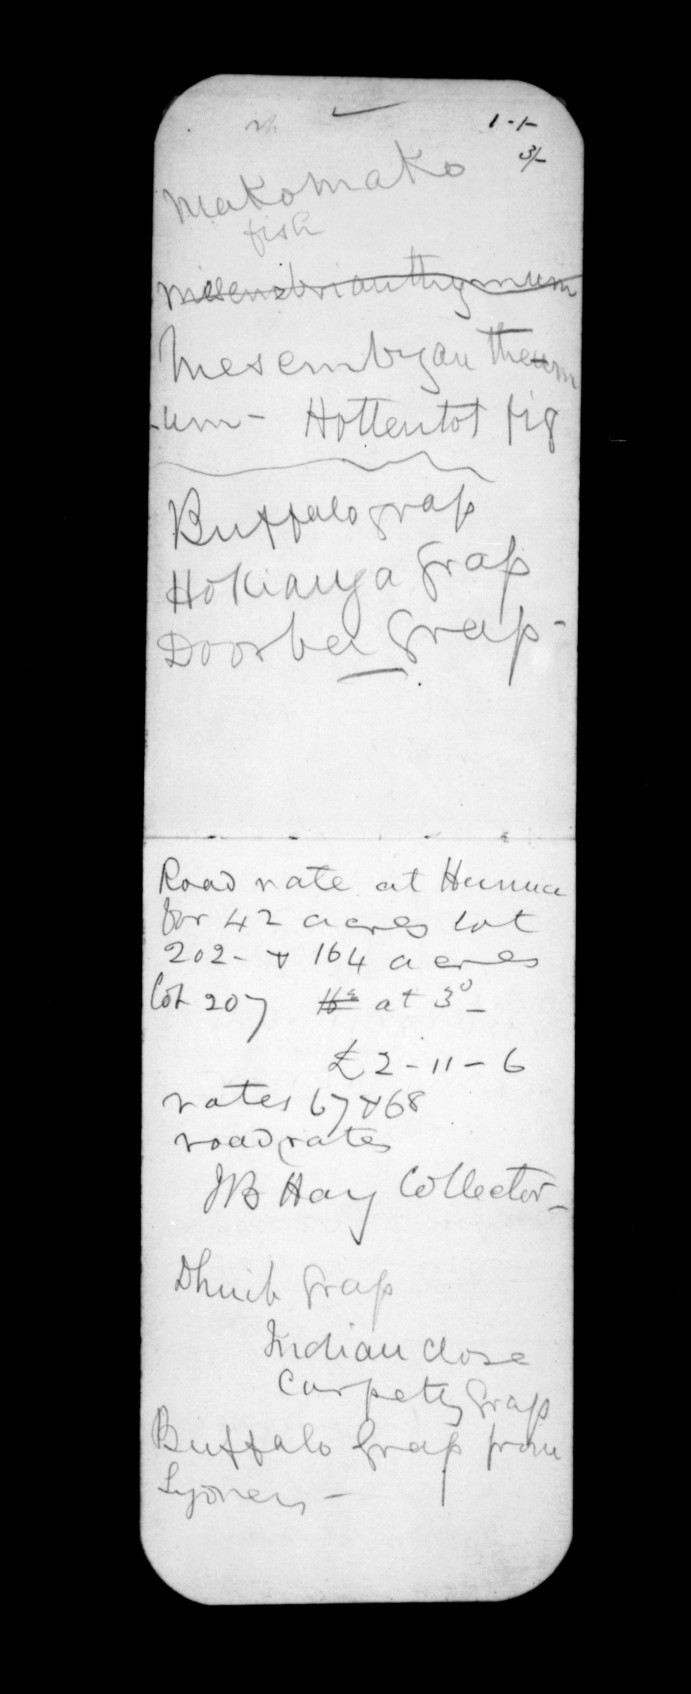 1-1-
3/-
Makomako
fish
Mesembrianthymum
Mesembryan theum
-um - Hottentot fig
Buffalo grass
Hokianga Grass
Doorba Grass -
Road rate at Hunua
for 42 acres lot
202 - & 164 acres
lot 207 at 3d -
£2-11-6
rates 67 & 68
road rates
JB Hay Collector -
Dhuib Grass
Indian close
Carpety Grass
Buffalo Grass from
Sydney -